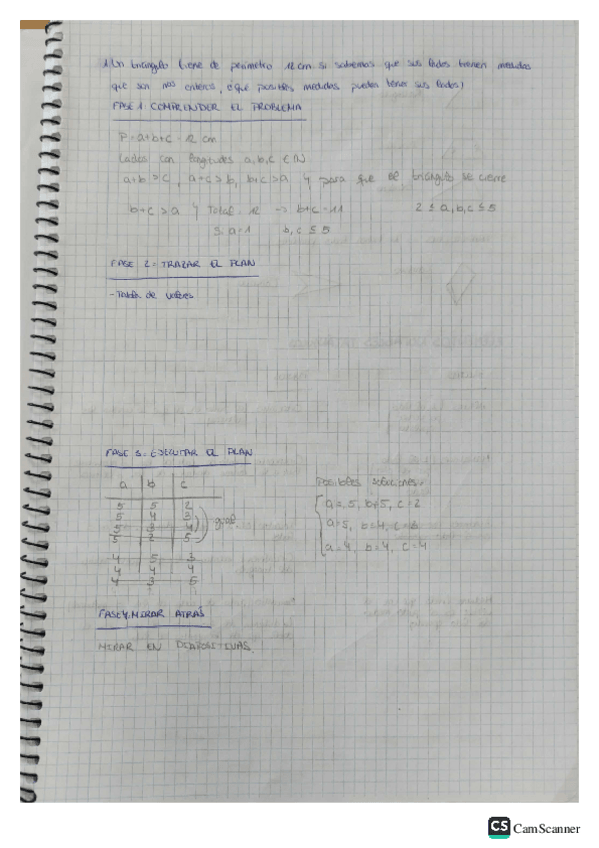 1. Un triángulo tiene de perímetro 12 cm si sabemos que sus lados tienen medidas
que son nos enteros, ¿qué posibles medidas pueden tener sus lados?
FASE 1. COMPRENDER EL PROBLEMA
P = a+b+c = 12 cm
Lados con longitudes a,b,c ∈ N
a+b > c, a+c > b, b+c > a ↳ para que el triángulo se cierre
b+c > a ↳ Total = 12 → b+c = 11 2 ≤ a,b,c ≤ 5
Si a=1 b,c ≤ 5
FASE 2: TRAZAR EL PLAN
- Tabla de valores
FASE 3: EJECUTAR EL PLAN
a b c
5 5 2
5 4 3
5 3 4
5 2 5
4 5 3
4 4 4
4 3 5
Posibles soluciones:
a=5, b=5, c=2
a=5, b=4, c=3
a=4, b=4, c=4
FASE 4. MIRAR ATRÁS
MIRAR EN DIAPOSITIVAS.
CS CamScanner